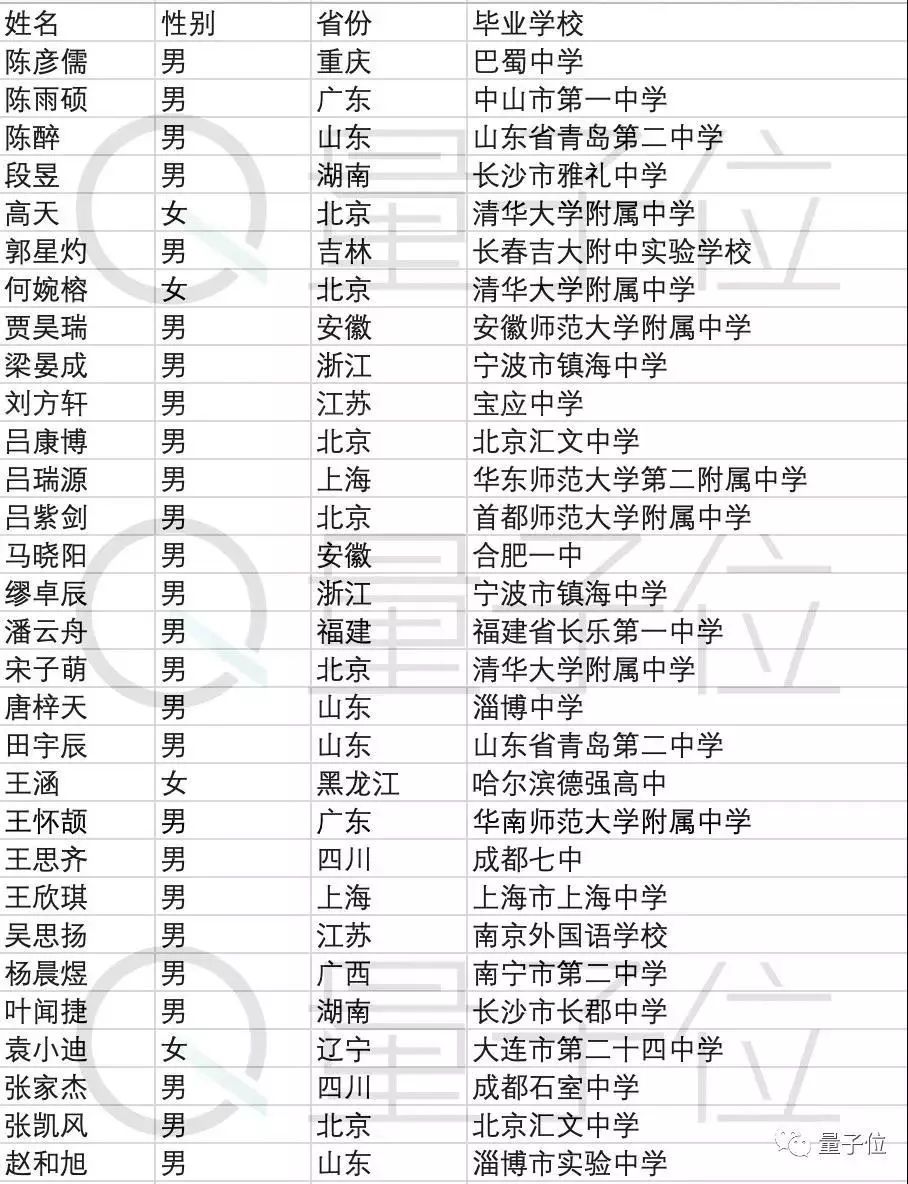 姓名 性别 省份 毕业学校
陈彦儒 男 重庆 巴蜀中学
陈雨硕 男 广东 中山市第一中学
陈醉 男 山东 山东省青岛第二中学
段昱 男 湖南 长沙市雅礼中学
高天 女 北京 清华大学附属中学
郭星灼 男 吉林 长春吉大附中实验学校
何婉榕 女 北京 清华大学附属中学
贾昊瑞 男 安徽 安徽师范大学附属中学
梁晏成 男 浙江 宁波市镇海中学
刘方轩 男 江苏 宝应中学
吕康博 男 北京 北京汇文中学
吕瑞源 男 上海 华东师范大学第二附属中学
吕紫剑 男 北京 首都师范大学附属中学
马晓阳 男 安徽 合肥一中
缪卓辰 男 浙江 宁波市镇海中学
潘云舟 男 福建 福建省长乐第一中学
宋子萌 男 北京 清华大学附属中学
唐梓天 男 山东 淄博中学
田宇辰 男 山东 山东省青岛第二中学
王涵 女 黑龙江 哈尔滨德强高中
王怀颉 男 广东 华南师范大学附属中学
王思齐 男 四川 成都七中
王欣琪 男 上海 上海市上海中学
吴思扬 男 江苏 南京外国语学校
杨晨煜 男 广西 南宁市第二中学
叶闻捷 男 湖南 长沙市长郡中学
袁小迪 女 辽宁 大连市第二十四中学
张家杰 男 四川 成都石室中学
张凯风 男 北京 北京汇文中学
赵和旭 男 山东 淄博市实验中学
量子位
量子位
量子位
量子位